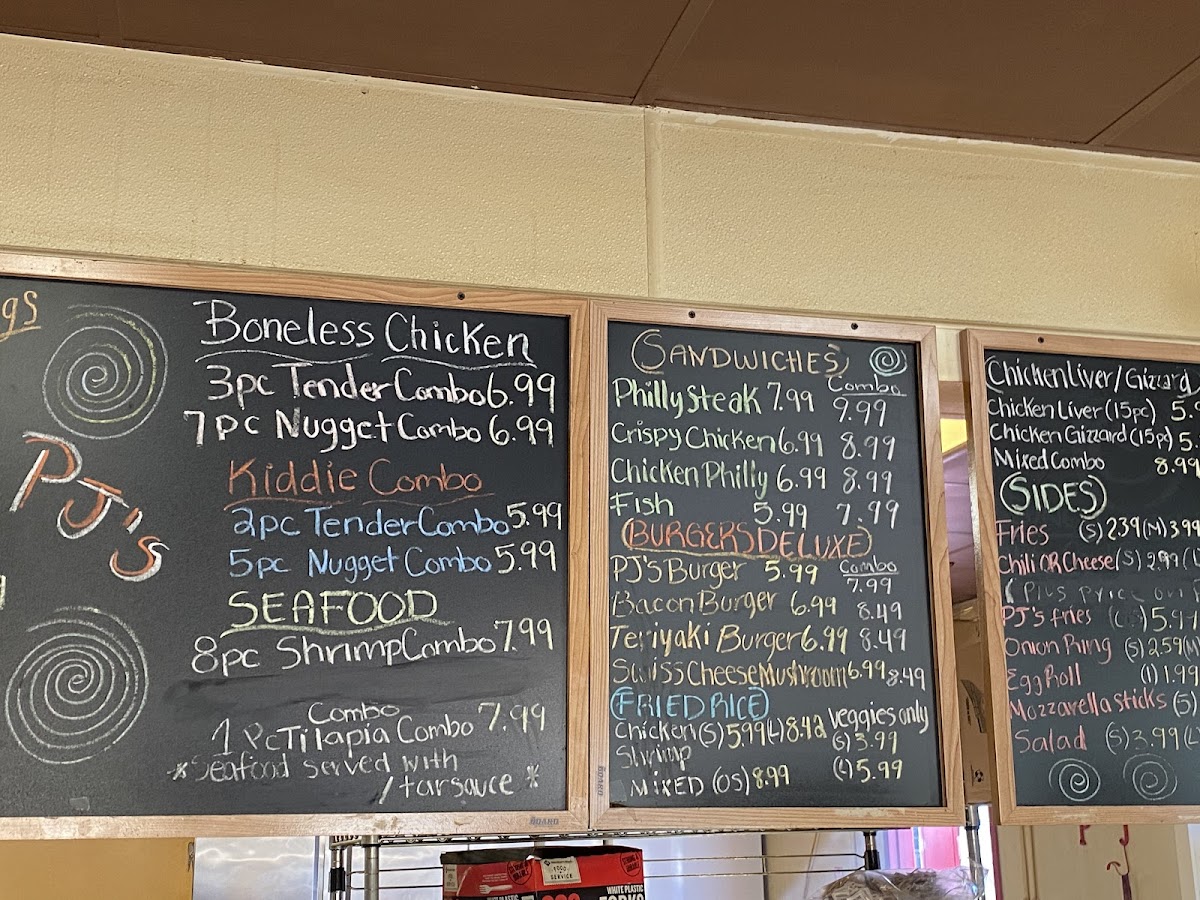 gs
PJ's
Boneless Chicken
3pc Tender Combo 6.99
7pc Nugget Combo 6.99
Kiddie Combo
2pc Tender Combo 5.99
5pc Nugget Combo 5.99
SEAFOOD
8pc Shrimp Combo 7.99
Combo
1 Pc Tilapia Combo 7.99
*Seafood served with
/tarsauce *
SANDWICHES
Combo
Philly Steak 7.99 9.99
Crispy Chicken 6.99 8.99
Chicken Philly 6.99 8.99
Fish 5.99 7.99
BURGERS DELUXE
Combo
PJ's Burger 5.99 7.99
Bacon Burger 6.99 8.49
Teriyaki Burger 6.99 8.49
Swiss Cheese Mushroom 6.99 8.49
FRIED RICE
Chicken (S) 5.99 (L) 8.42 veggies only
Shrimp (S) 3.99
MIXED (OS) 8.99 (L) 5.99
BOARD
BOARD
Chicken Liver / Gizzard
Chicken Liver (15pc) 5.
Chicken Gizzard (15pc) 5
Mixed Combo 8.99
SIDES
Fries (S) 2.39 (M) 3.99
Chili OR Cheese (S) 2.99 (L
PJ's fries 5.9
Onion Ring (S) 2.59 (M
Egg Roll (1) 1.99
Mozzarella sticks (5)
Salad (S) 3.99 (L
PJ
WHITE PLASTIC
FORKS